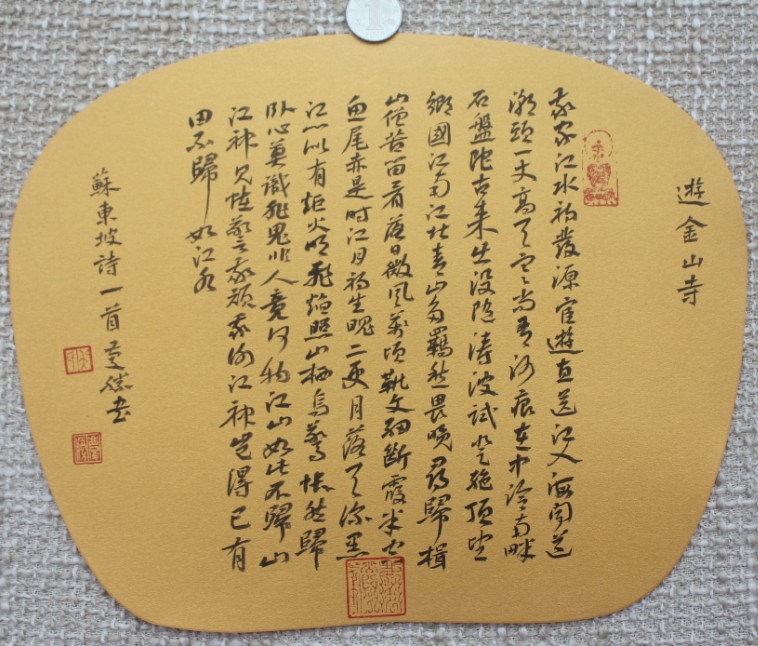 遊金山寺
我家江水初發源宦遊直送江入海聞道
潮頭一丈高天寒尚有沙痕在中泠南畔
石盤陀古来出没隨濤波試登絕頂望
鄉國江南江北青山多羈愁畏晚尋歸楫
山僧苦留看落日微風萬頃靴文細斷霞半空
魚尾赤是時江月初生魄二更月落天深黑
江心似有炬火明飛焰照山栖烏驚悵然歸
臥心莫識非鬼非人竟何物江山如此不歸山
江神見怪驚我頑我謝江神豈得已有
田不歸如江水
蘇東坡詩一首書